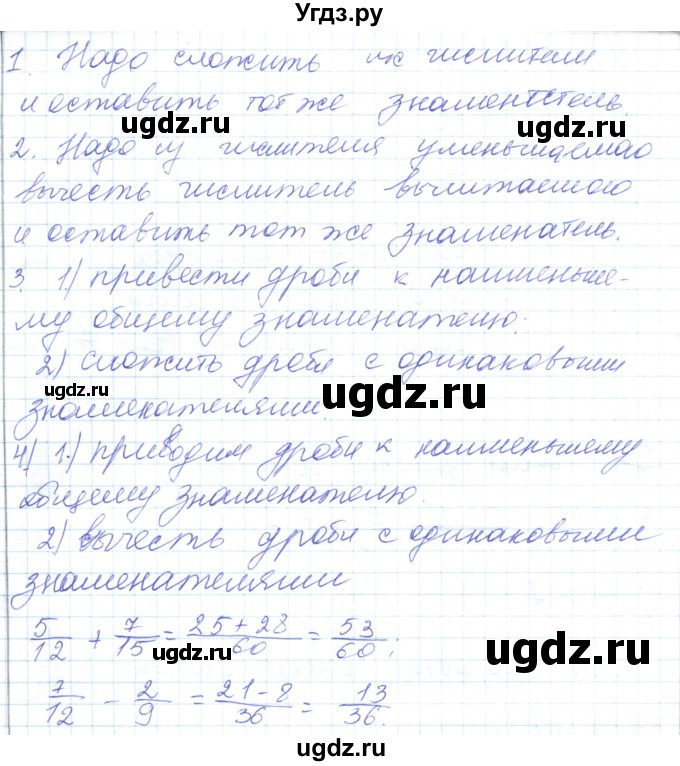 Угдз.ру
1. Надо сложить их числители
и оставить тот же знаменатель
ugdz.ru ugdz.ru
2. Надо из числителя уменьшаемого
вычесть числитель вычитаемого
и оставить тот же знаменатель.
ugdz.ru
3. 1) привести дроби к наименьше-
му общему знаменателю.
2) сложить дроби с одинаковыми
ugdz.ru ugdz.ru
знаменателями.
4) 1.) приводим дроби к наименьшему
общему знаменателю.
ugdz.ru
2) вычесть дроби с одинаковыми
знаменателями
5/12 + 7/15 = 25+28/60 = 53/60;
ugdz.ru ugdz.ru
7/12 - 2/9 = 21-8/36 = 13/36.
ugdz.ru